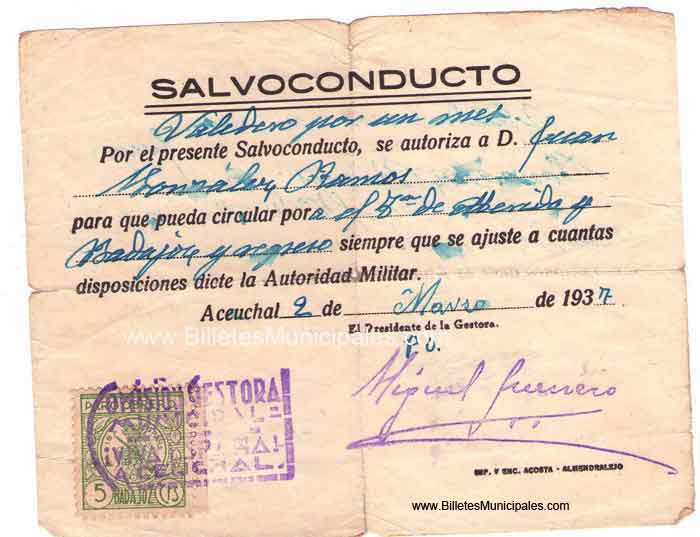 SALVOCONDUCTO
Valedero por un mes.
Por el presente Salvoconducto, se autoriza a D. Juan
González Ramos
para que pueda circular por a el de Merida y
Badajoz y regreso siempre que se ajuste a cuantas
disposiciones dicte la Autoridad Militar.
Aceuchal 2 de Marzo de 1937
El Presidente de la Gestora.
P.O.
www.BilletesMunicipales.com
Miguel Guerrero
GESTORA
VIVA
5 BADAJOZ CTS
IMP. Y ENC. ACOSTA - ALMENDRALEJO
www.BilletesMunicipales.com